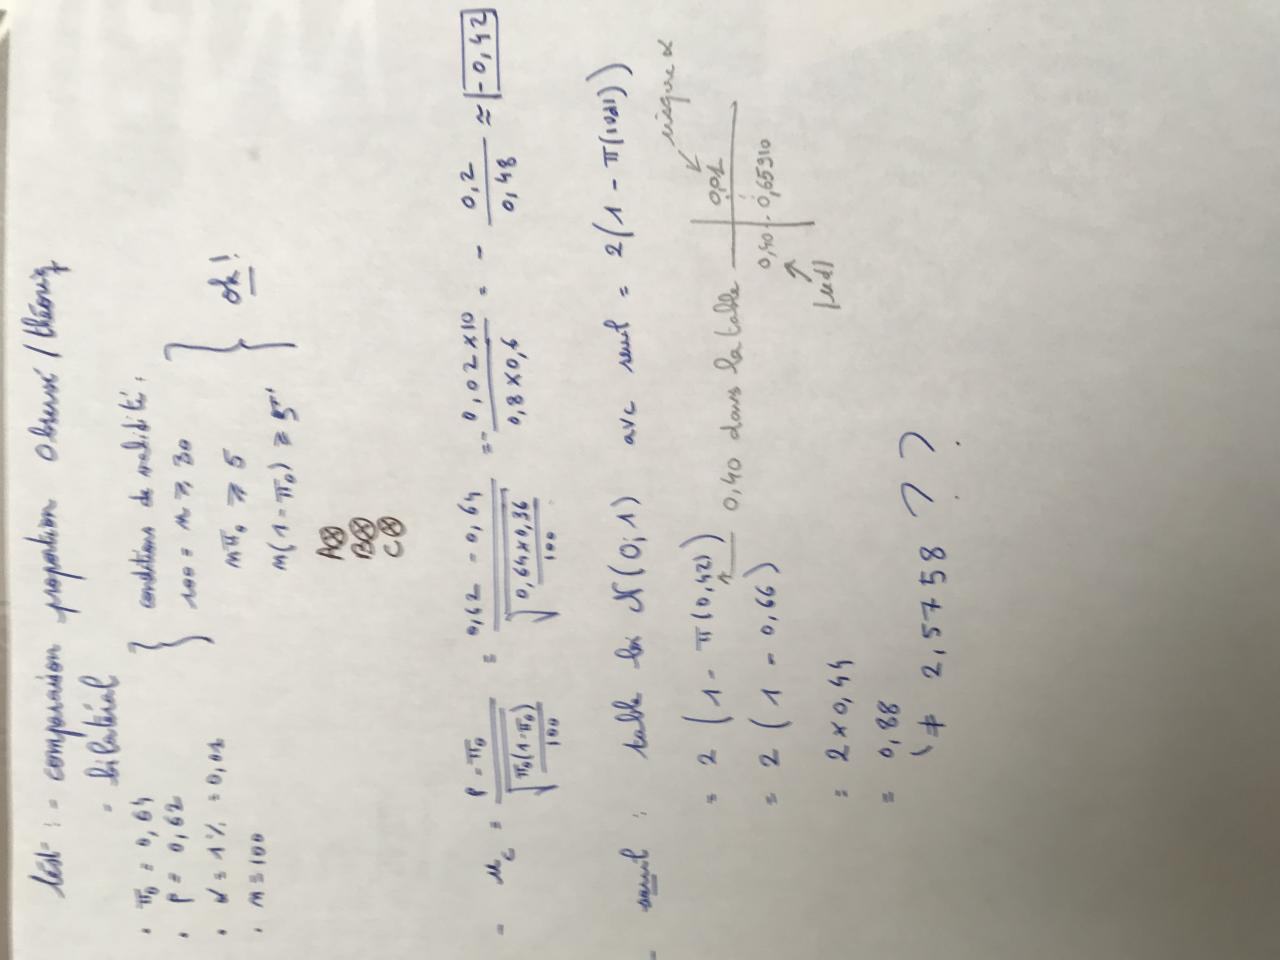 test : - comparaison proportion observé / théoriq
= bilatéral
• π₀ = 0,64
• p = 0,62
• α = 1% = 0,01
• n = 100
} conditions de validité :
100 = n ⩾ 30
nπ₀ ⩾ 5
n(1-π₀) ⩾ 5
} ok !
A⊗
B⊗
C⊗
- μc = p - π₀ / √(π₀(1-π₀) / 100) = 0,62 - 0,64 / √(0,64 x 0,36 / 100) = - 0,02 x 10 / 0,8 x 0,6 = - 0,2 / 0,48 ≈ -0,42
- seuil : table loi N(0;1) avc seuil = 2(1 - π(|μc|))
= 2 (1 - π(0,42))
0,40 dans la table
0,01 ← risque α
0,40 · · 0,65910
↑ |μc|
= 2 (1 - 0,66)
= 2 x 0,44
= 0,88
(≠ 2,5758 ??